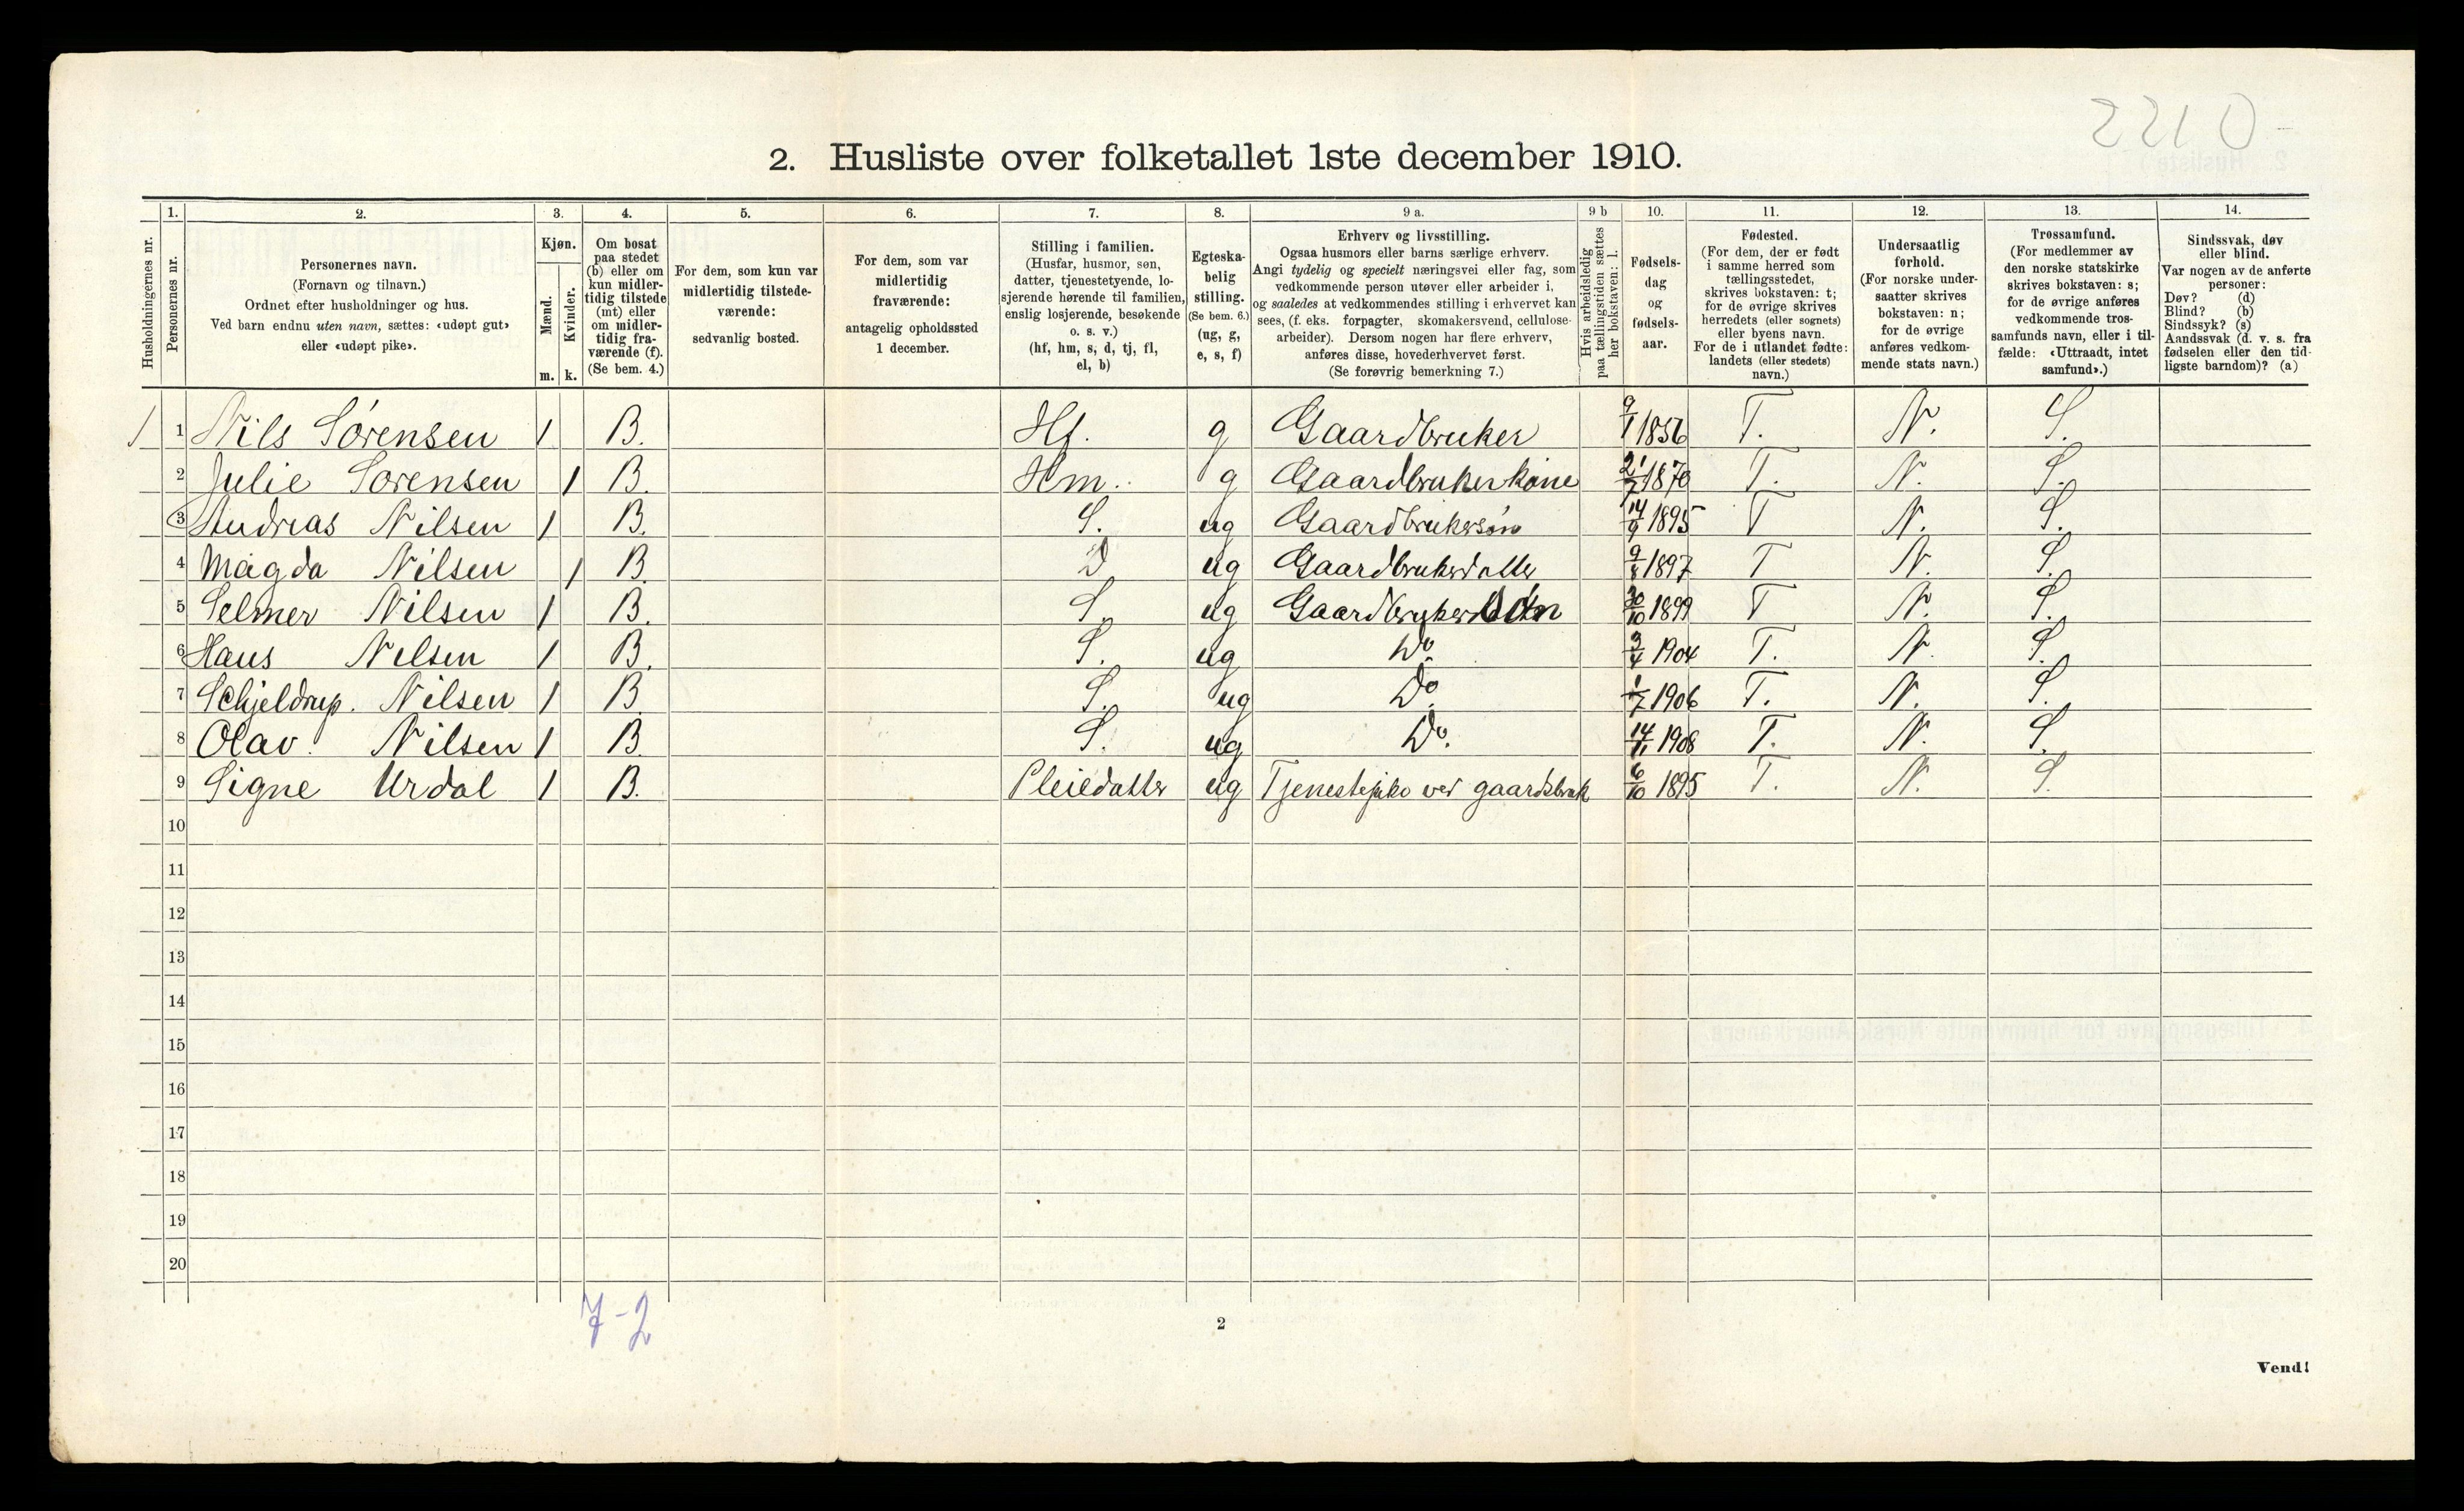 2210
2. Husliste over folketallet 1ste december 1910.
Husholdningernes nr.
1. 2. 3. 4. 5. 6. 7. 8. 9 a. 9 b 10. 11. 12. 13. 14.
Personernes nr.
Personernes navn.
(Fornavn og tilnavn.)
Ordnet efter husholdninger og hus.
Ved barn endnu uten navn, sættes: «udøpt gut»
eller «udøpt pike».
Kjøn.
Mænd.
Kvinder.
m. k.
Om bosat
paa stedet
(b) eller om
kun midler-
tidig tilstede
(mt) eller
om midler-
tidig fra-
værende (f).
(Se bem. 4.)
For dem, som kun var
midlertidig tilstede-
værende:
sedvanlig bosted.
For dem, som var
midlertidig
fraværende:
antagelig opholdssted
1 december.
Stilling i familien.
(Husfar, husmor, søn,
datter, tjenestetyende, lo-
sjerende hørende til familien,
enslig losjerende, besøkende
o. s. v.)
(hf, hm, s, d, tj, fl,
el, b)
Egteska-
belig
stilling.
(Se bem. 6.)
(ug, g,
e, s, f)
Erhverv og livsstilling.
Ogsaa husmors eller barns særlige erhverv.
Angi tydelig og specielt næringsvei eller fag, som
vedkommende person utøver eller arbeider i,
og saaledes at vedkommendes stilling i erhvervet kan
sees, (f. eks. forpagter, skomakersvend, cellulose-
arbeider). Dersom nogen har flere erhverv,
anføres disse, hovederhvervet først.
(Se forøvrig bemerkning 7.)
Hvis arbeidsledig
paa tællingstiden sættes
her bokstaven: l.
Fødsels-
dag
og
fødsels-
aar.
Fødested.
(For dem, der er født
i samme herred som
tællingsstedet,
skrives bokstaven: t;
for de øvrige skrives
herredets (eller sognets)
eller byens navn.
For de i utlandet fødte:
landets (eller stedets)
navn.)
Undersaatlig
forhold.
(For norske under-
saatter skrives
bokstaven: n;
for de øvrige
anføres vedkom-
mende stats navn.)
Trossamfund.
(For medlemmer av
den norske statskirke
skrives bokstaven: s;
for de øvrige anføres
vedkommende tros-
samfunds navn, eller i til-
fælde: «Uttraadt, intet
samfund».)
Sindssvak, døv
eller blind.
Var nogen av de anførte
personer:
Døv? (d)
Blind? (b)
Sindssyk? (s)
Aandssvak (d. v. s. fra
fødselen eller den tid-
ligste barndom)? (a)
1 1 Nils Sørensen 1 B. Hf. g Gaardbruker 9/1 1856 T. N. S.
2 Julie Sørensen 1 B. Hm. g Gaardbrukerkone 1870 T. N. S.
3 Andreas Nilsen 1 B. S. ug Gaardbrukersøn 14/9 1895 T N. S.
4 Magda Nilsen 1 B. D ug Gaardbrukerdatter 9/8 1897 T N. S.
5 Selmer Nilsen 1 B. S. ug Gaardbrukersøn 30/10 1899 T N. S.
6 Hans Nilsen 1 B. S. ug Do. 3/4 1904 T. N. S.
7 Schjeldrup. Nilsen 1 B. S. ug Do. 1/7 1906 T. N. S.
8 Olav. Nilsen 1 B. S. ug Do. 14/11 1908 T. N. S.
9 Signe Urdal 1 B. Pleiedatter ug Tjenestepike ved gaardsbruk 6/10 1895 T. N. S.
10
11
12
13
14
15
16
17
18
19
20
7-2
2
Vend!